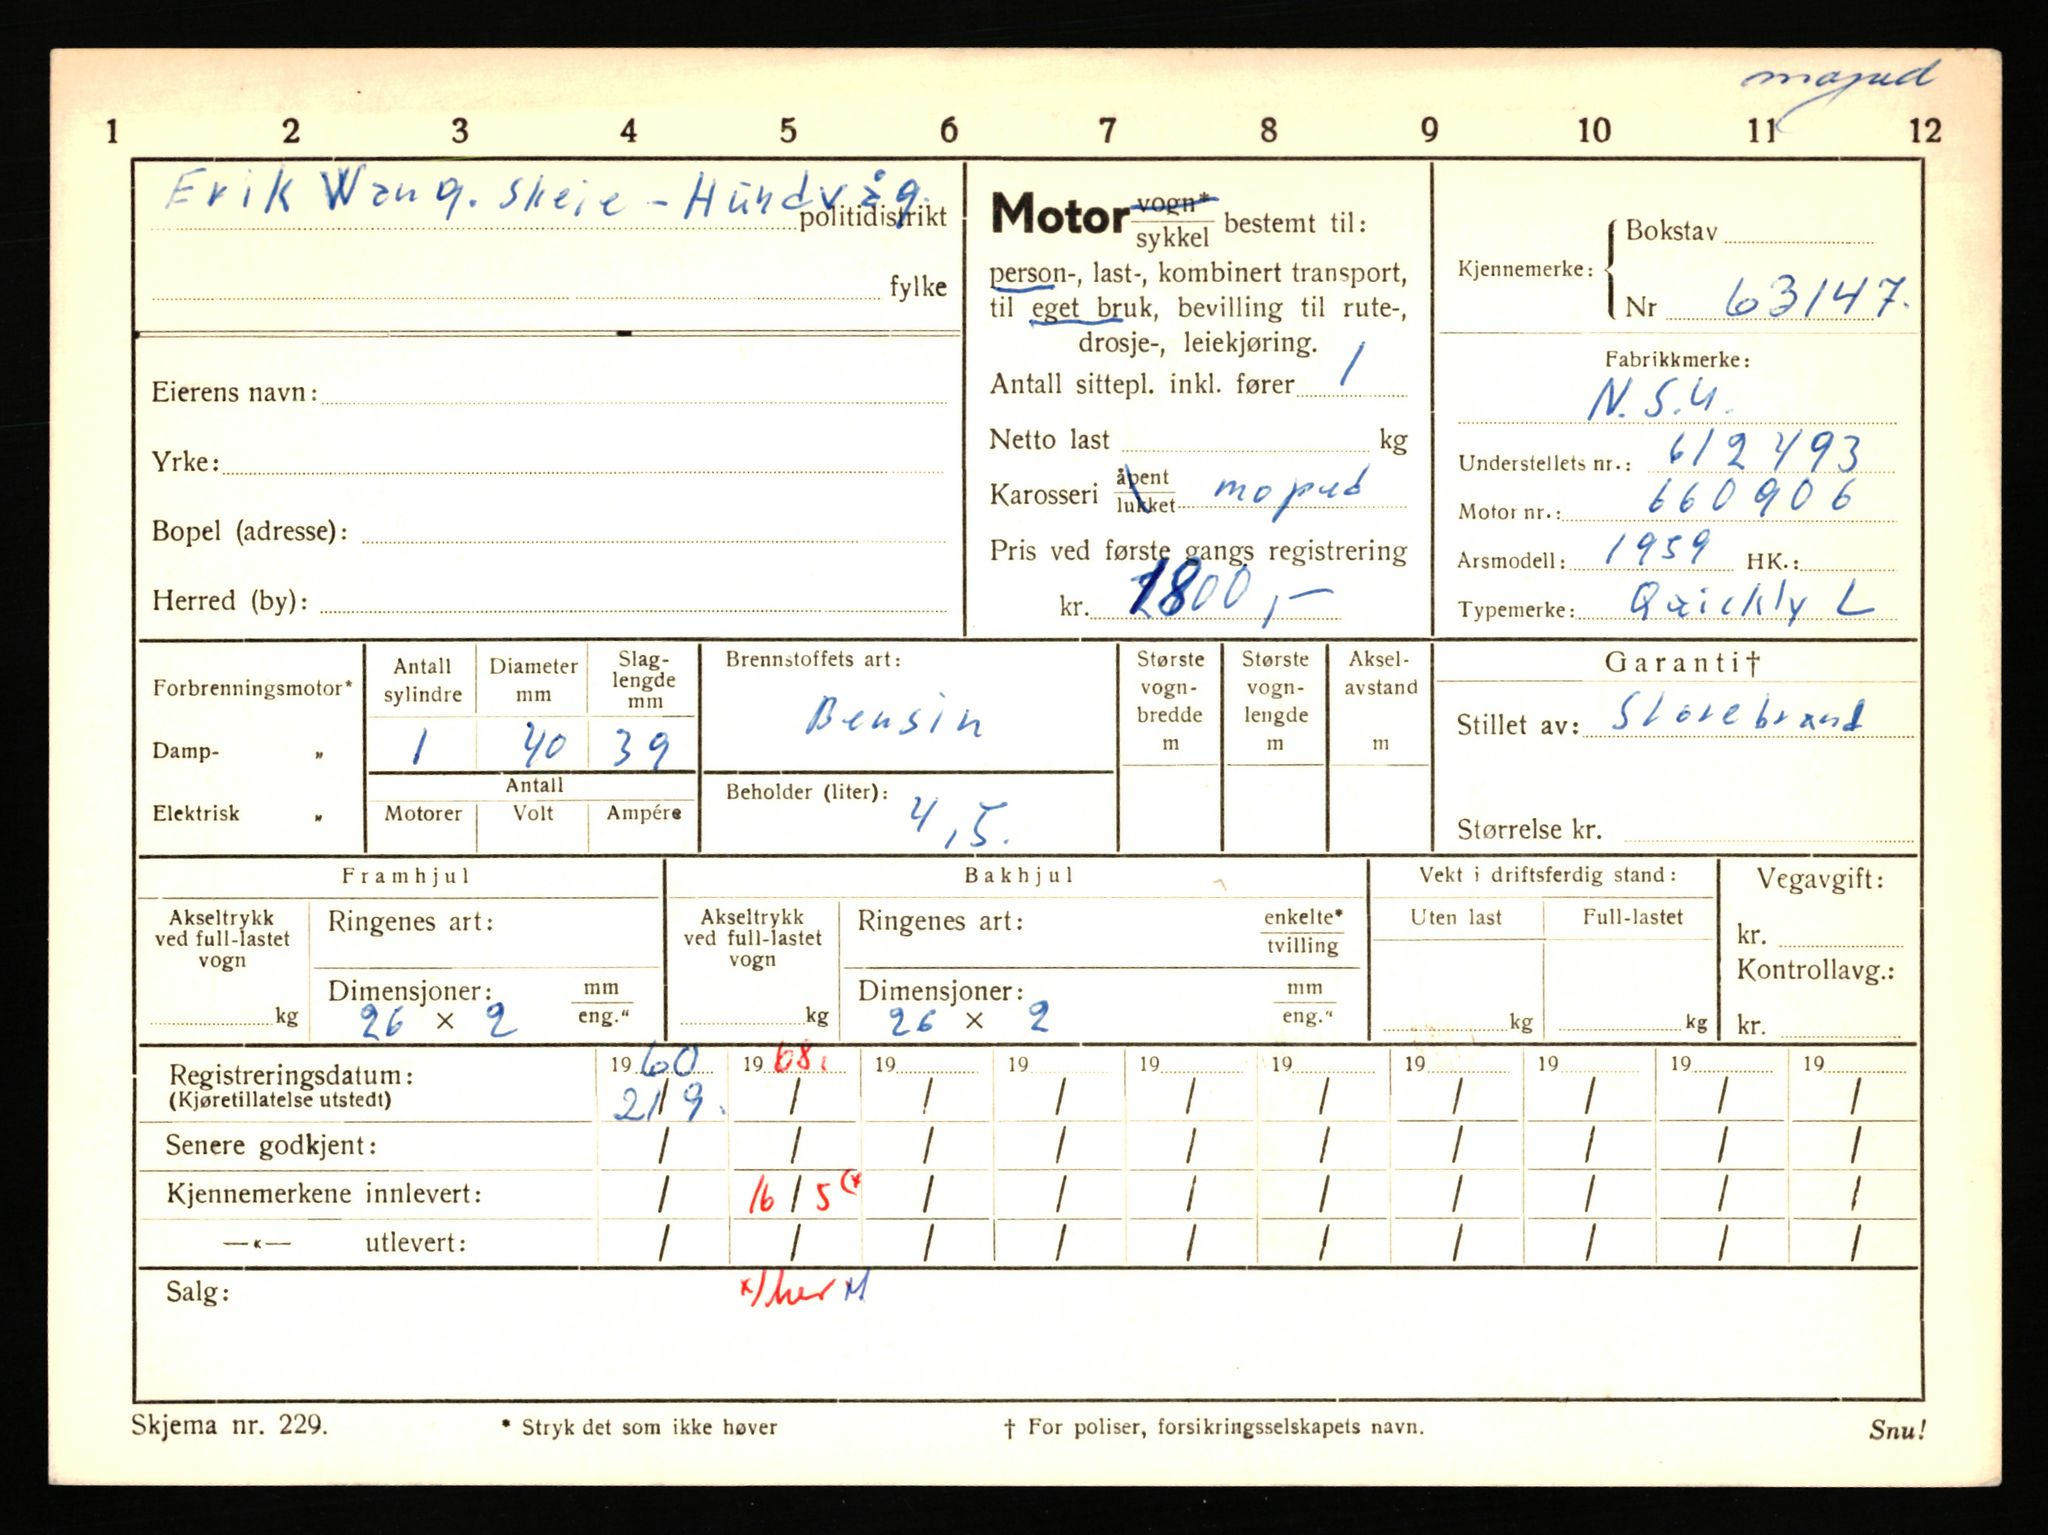 moped
1 2 3 4 5 6 7 8 9 10 11 12
Erik Wang. Skeie - Hundvåg.
politidistrikt
fylke
Eierens navn:
Yrke:
Bopel (adresse):
Herred (by):
Motor vogn* / sykkel bestemt til:
person-, last-, kombinert transport,
til eget bruk, bevilling til rute-,
drosje-, leiekjøring.
Antall sittepl. inkl. fører 1
Netto last kg
Karosseri åpent / lukket moped
Pris ved første gangs registrering
kr. 1800,-
Kjennemerke: Bokstav
Nr 63147.
Fabrikkmerke:
N.S.U.
Understellets nr.: 612493
Motor nr.: 660906
Arsmodell: 1959 HK.:
Typemerke: Quickly L
Forbrenningsmotor*
Damp- „
Elektrisk „
Antall sylindre 1
Diameter mm 40
Slag-lengde mm 39
Antall
Motorer Volt Ampére
Brennstoffets art:
Bensin
Beholder (liter):
4,5.
Største vogn-bredde m
Største vogn-lengde m
Aksel-avstand m
Garanti†
Stillet av: Storebrand
Størrelse kr.
Framhjul
Akseltrykk ved full-lastet vogn
kg
Ringenes art:
Dimensjoner: mm / eng."
26 × 2
Bakhjul
Akseltrykk ved full-lastet vogn
kg
Ringenes art: enkelte* / tvilling
Dimensjoner: mm / eng."
26 × 2
Vekt i driftsferdig stand:
Uten last Full-lastet
kg kg
Vegavgift:
kr.
Kontrollavg.:
kr.
Registreringsdatum: 1960 1968. 19 19 19 19 19 19 19 19
(Kjøretillatelse utstedt) 2/9. / / / / / / / / /
Senere godkjent: / / / / / / / / / /
Kjennemerkene innlevert: / 16/5 (* / / / / / / / /
—«— utlevert: / / / / / / / / / /
Salg: x) her
Skjema nr. 229. * Stryk det som ikke høver † For poliser, forsikringsselskapets navn. Snu!